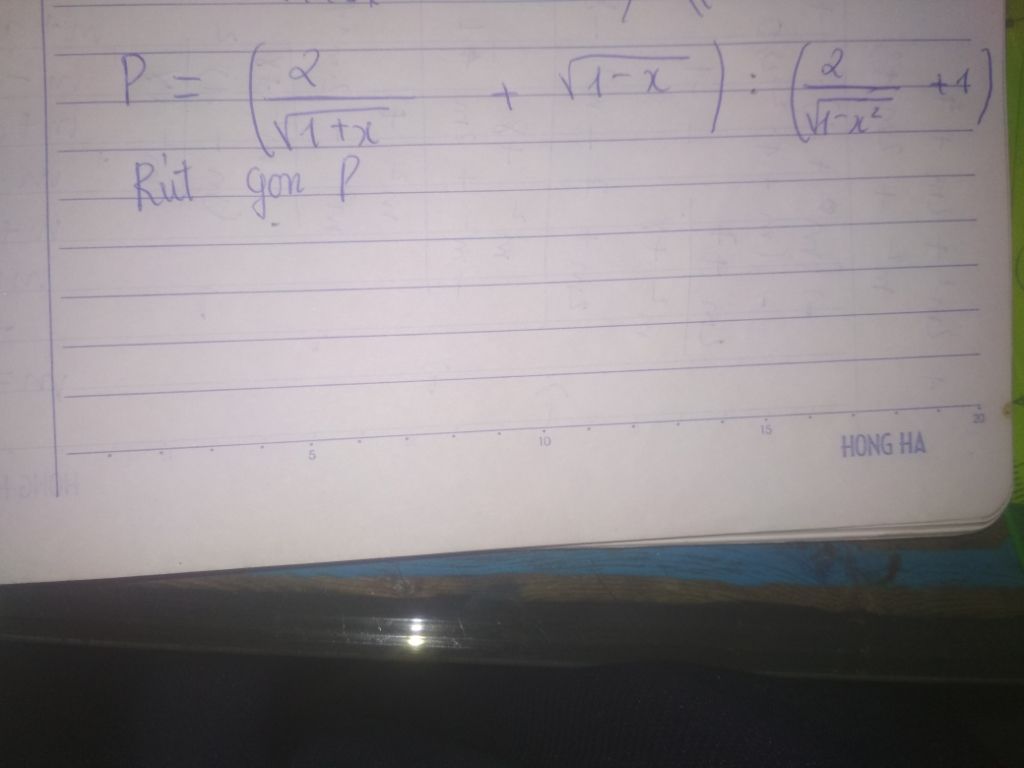 P = (2/√(1+x) + √(1-x)) : (2/√(1-x²) + 1)
Rút gọn P
5 10 15 20
HONG HA